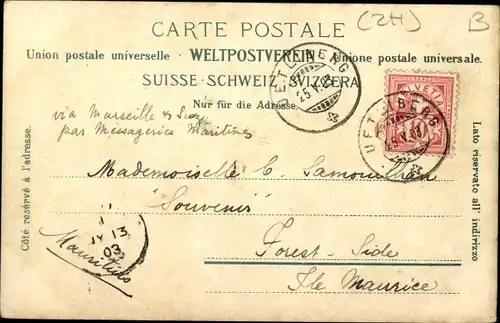 (ZH)
B
CARTE POSTALE
Union postale universelle WELTPOSTVEREIN Unione postale universale.
SUISSE · SCHWEIZ · SVIZZERA
Nur für die Adresse.
25. V. 03
HELVETIA
10
UETLIBERG
via Marseille & Suez
par Messageries Maritimes
Mademoiselle C.
"Souvenir"
Forest-Side
Ile Maurice
13
03
Mauritius
Côté réservé à l'adresse.
Lato riservato all' indirizzo